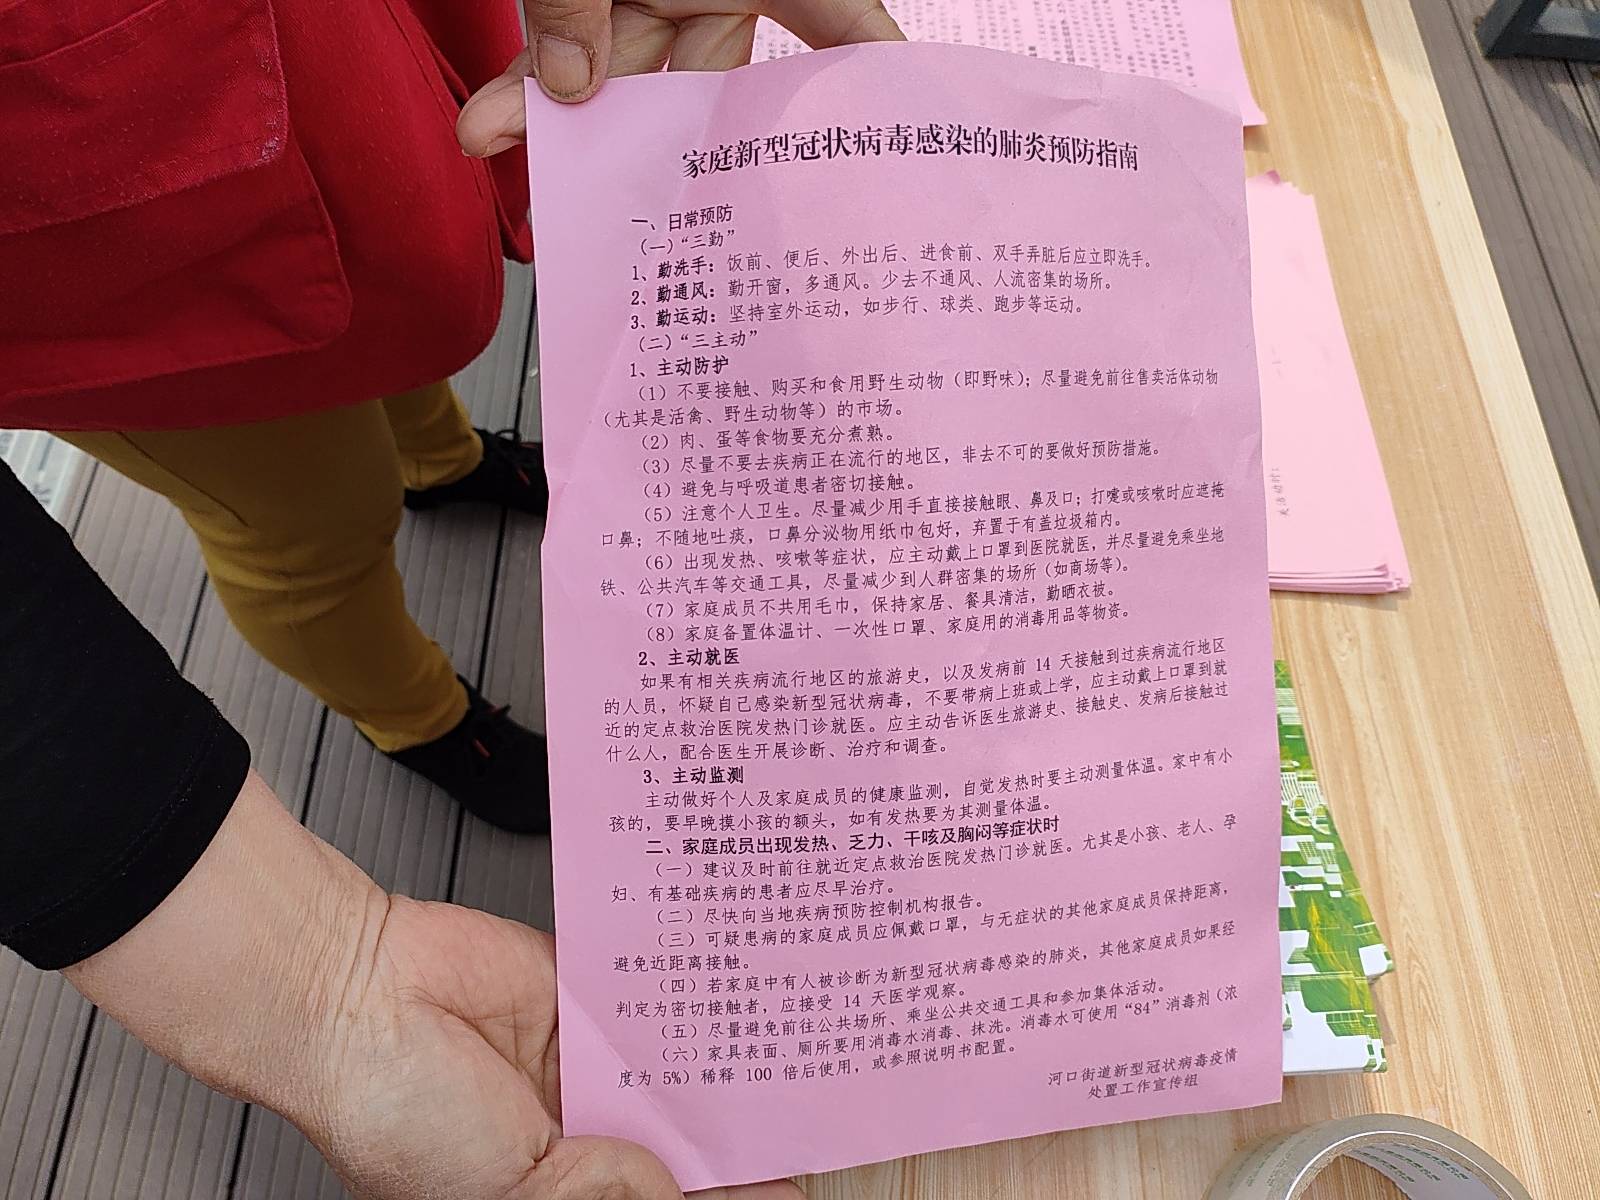 家庭新型冠状病毒感染的肺炎预防指南
一、日常预防
（一）“三勤”
1、勤洗手：饭前、便后、外出后、进食前、双手弄脏后应立即洗手。
2、勤通风：勤开窗，多通风。少去不通风、人流密集的场所。
3、勤运动：坚持室外运动，如步行、球类、跑步等运动。
（二）“三主动”
1、主动防护
（1）不要接触、购买和食用野生动物（即野味）；尽量避免前往售卖活体动物
（尤其是活禽、野生动物等）的市场。
（2）肉、蛋等食物要充分煮熟。
（3）尽量不要去疾病正在流行的地区，非去不可的要做好预防措施。
（4）避免与呼吸道患者密切接触。
（5）注意个人卫生。尽量减少用手直接接触眼、鼻及口；打嚏或咳嗽时应遮掩
口鼻；不随地吐痰，口鼻分泌物用纸巾包好，弃置于有盖垃圾箱内。
（6）出现发热、咳嗽等症状，应主动戴上口罩到医院就医，并尽量避免乘坐地
铁、公共汽车等交通工具，尽量减少到人群密集的场所（如商场等）。
（7）家庭成员不共用毛巾，保持家居、餐具清洁，勤晒衣被。
（8）家庭备置体温计、一次性口罩、家庭用的消毒用品等物资。
2、主动就医
如果有相关疾病流行地区的旅游史，以及发病前 14 天接触到过疾病流行地区
的人员，怀疑自己感染新型冠状病毒，不要带病上班或上学，应主动戴上口罩到就
近的定点救治医院发热门诊就医。应主动告诉医生旅游史、接触史、发病后接触过
什么人，配合医生开展诊断、治疗和调查。
3、主动监测
主动做好个人及家庭成员的健康监测，自觉发热时要主动测量体温。家中有小
孩的，要早晚摸小孩的额头，如有发热要为其测量体温。
二、家庭成员出现发热、乏力、干咳及胸闷等症状时
（一）建议及时前往就近定点救治医院发热门诊就医。尤其是小孩、老人、孕
妇、有基础疾病的患者应尽早治疗。
（二）尽快向当地疾病预防控制机构报告。
（三）可疑患病的家庭成员应佩戴口罩，与无症状的其他家庭成员保持距离，
避免近距离接触。
（四）若家庭中有人被诊断为新型冠状病毒感染的肺炎，其他家庭成员如果经
判定为密切接触者，应接受 14 天医学观察。
（五）尽量避免前往公共场所、乘坐公共交通工具和参加集体活动。
（六）家具表面、厕所要用消毒水消毒、抹洗。消毒水可使用“84”消毒剂（浓
度为 5%）稀释 100 倍后使用，或参照说明书配置。
河口街道新型冠状病毒疫情
处置工作宣传组